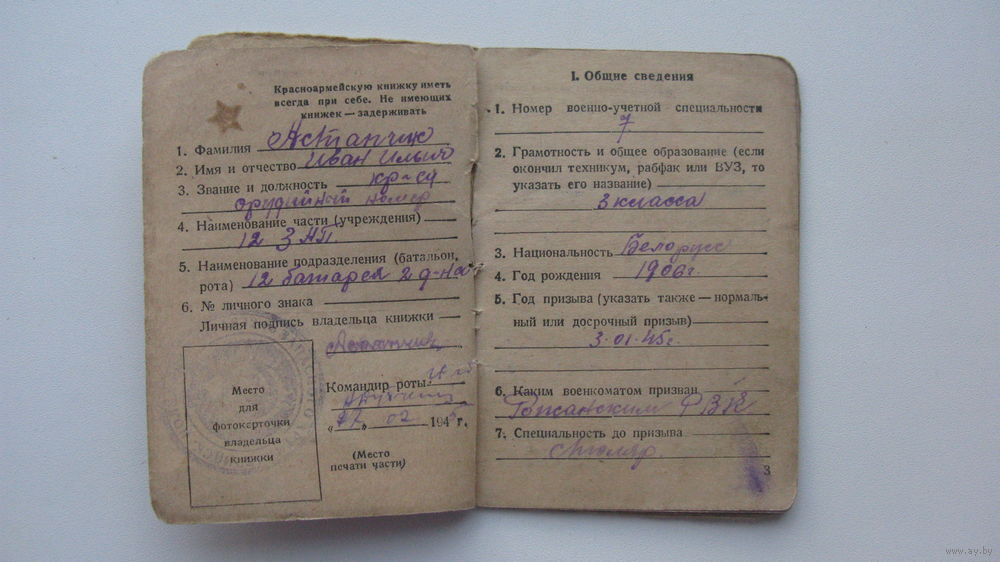 Красноармейскую книжку иметь
всегда при себе. Не имеющих
книжек — задерживать
1. Фамилия Астапчик
2. Имя и отчество Иван Ильич
3. Звание и должность кр-ец
орудийный номер
4. Наименование части (учреждения)
12 ЗАП.
5. Наименование подразделения (батальон,
рота) 12 батарея 2 д-на
6. № личного знака
Личная подпись владельца книжки
Астапчик
Место
для
фотокарточки
владельца
книжки
Командир роты
"27" 02 1945 г.
(Место
печати части)
1. Общие сведения
1. Номер военно-учетной специальности
7
2. Грамотность и общее образование (если
окончил техникум, рабфак или ВУЗ, то
указать его название)
3 класса
3. Национальность Белорус
4. Год рождения 1906 г.
5. Год призыва (указать также — нормаль-
ный или досрочный призыв)
3.01.45 г.
6. Каким военкоматом призван
Ружанским РВК
7. Специальность до призыва
Столяр.
3
www.ay.by